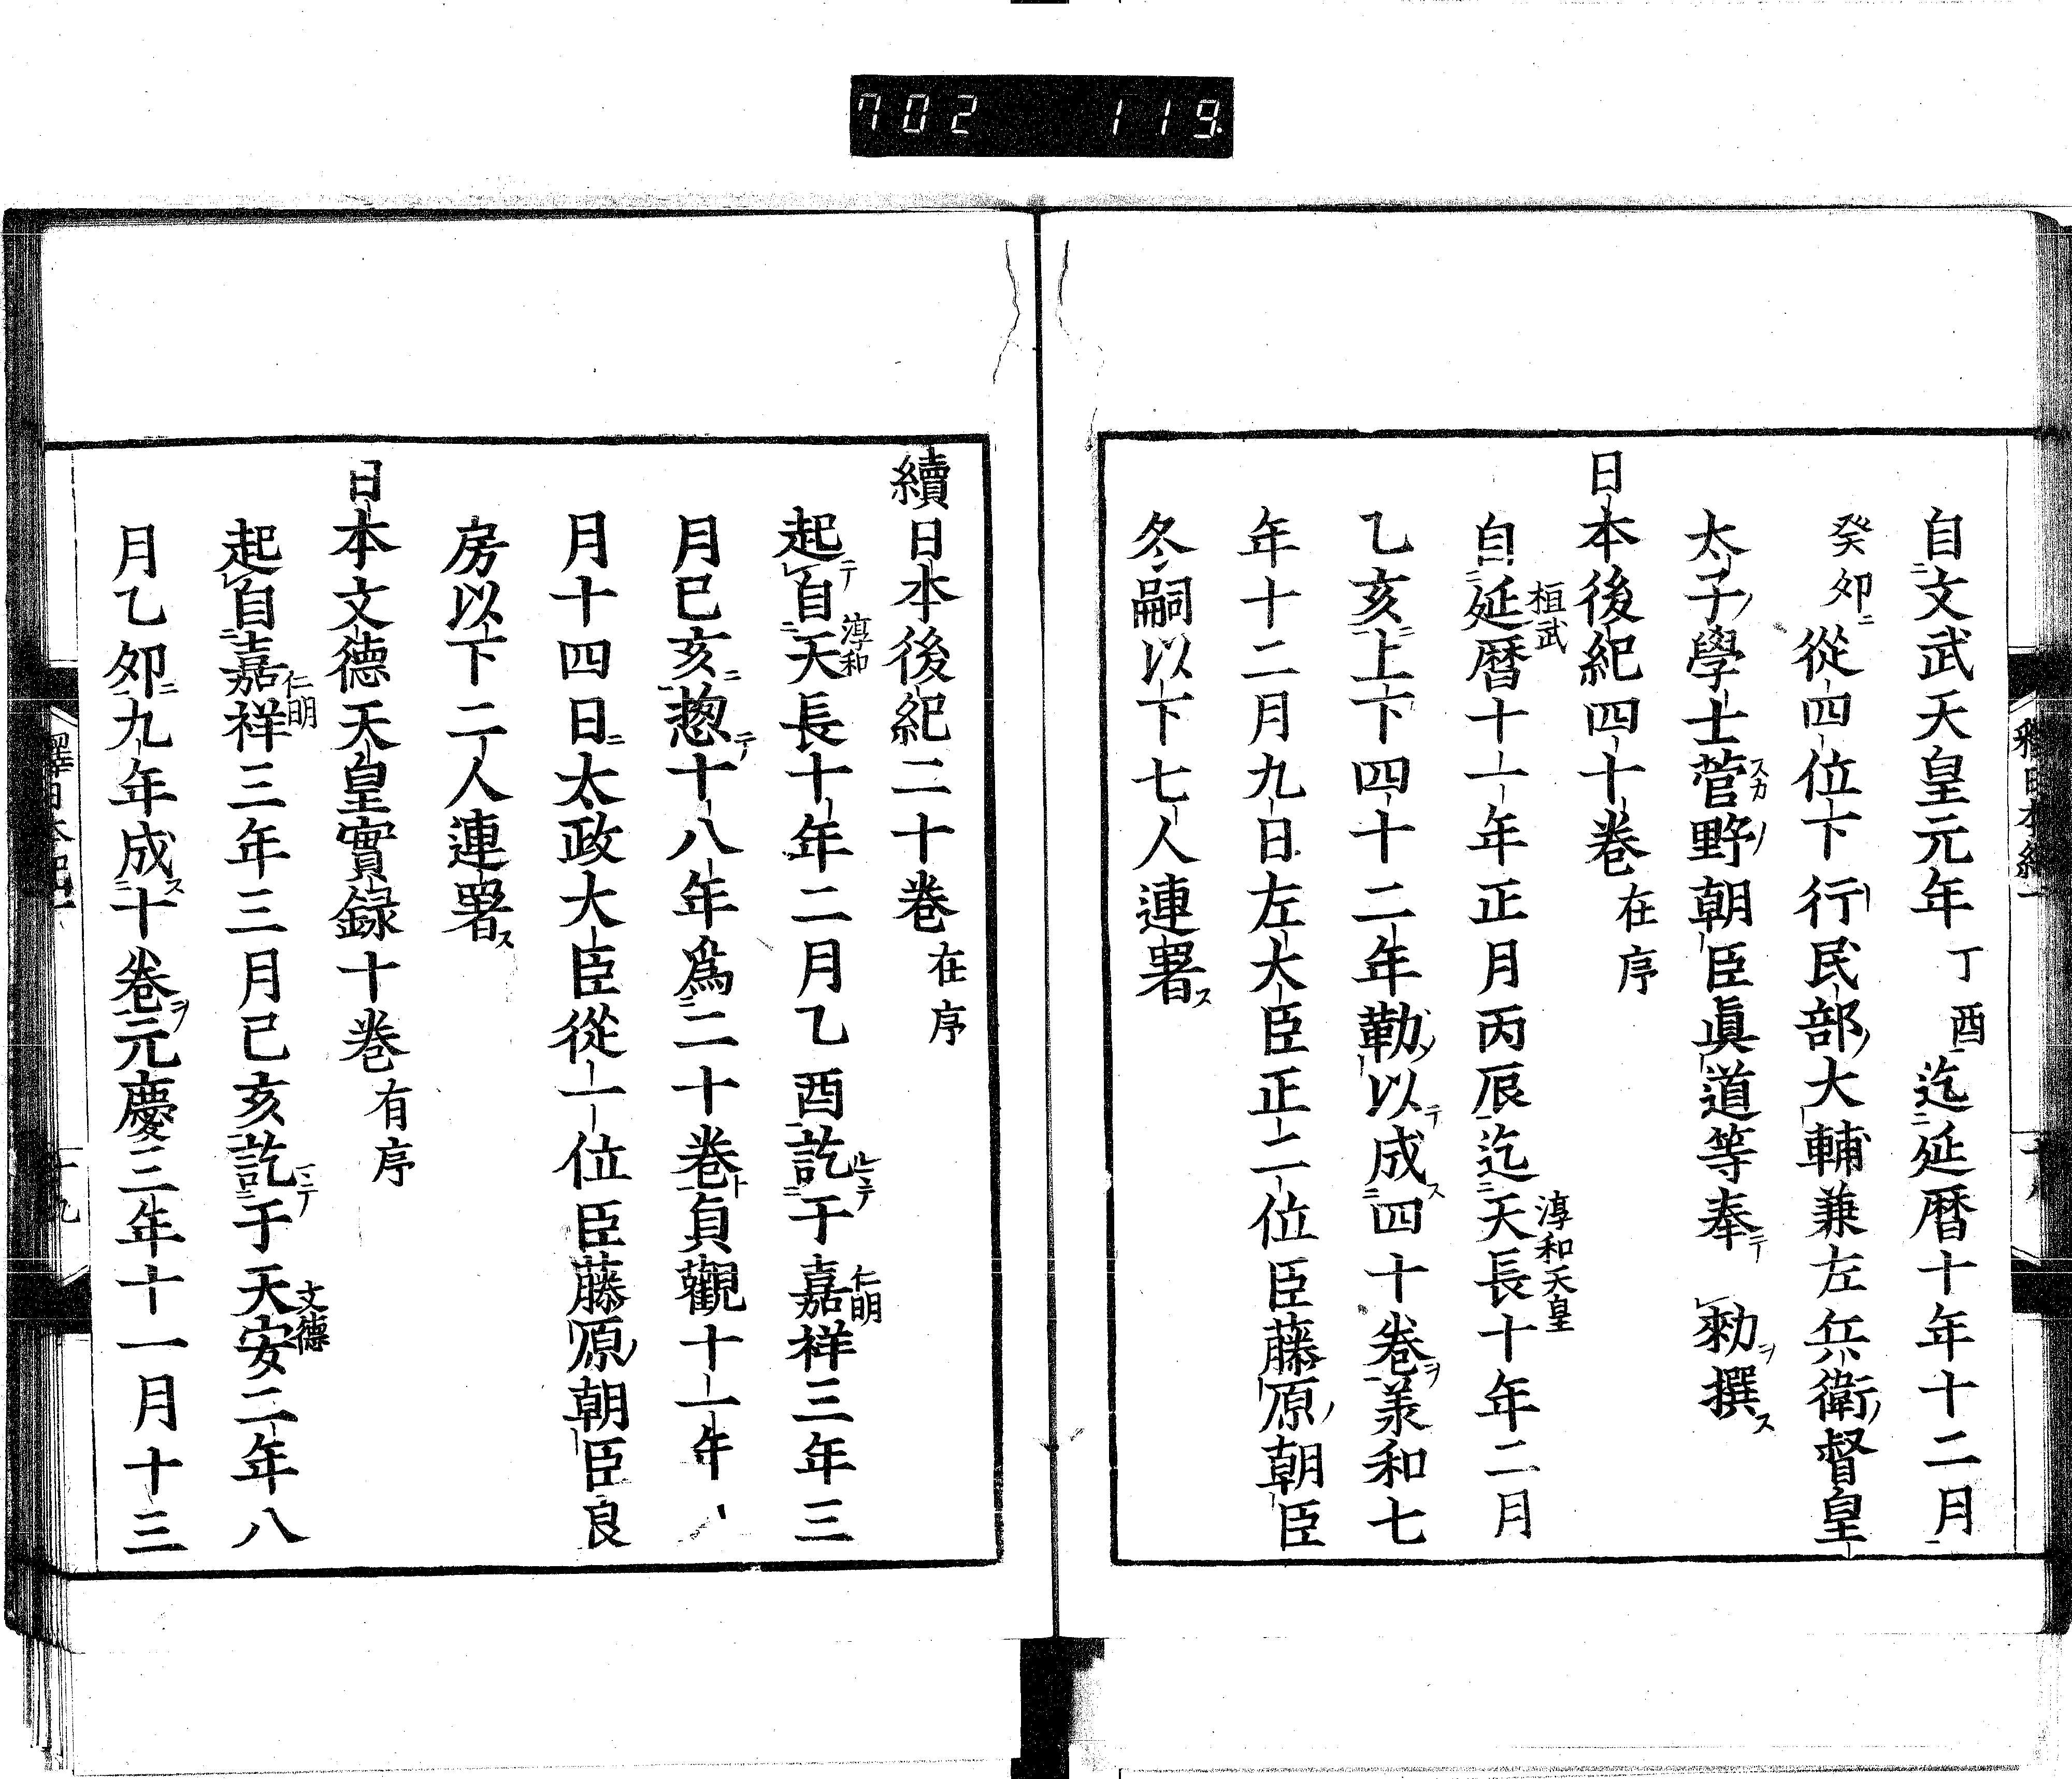 702 119
自文武天皇元年丁酉迄延曆十年十二月
癸卯從四位下行民部大輔兼左兵衛督皇
太子學士菅野朝臣眞道等奉 勑撰
日本後紀四十卷在序
自延曆十一年正月丙辰迄天長十年二月
乙亥上下四十二年勒以成四十卷羕和七
年十二月九日左大臣正二位臣藤原朝臣
冬嗣以下七人連署
續日本後紀二十卷在序
起自天長十年二月乙酉訖于嘉祥三年三
月己亥惣十八年爲二十卷貞觀十一年
月十四日太政大臣從一位臣藤原朝臣良
房以下二人連署
日本文德天皇實録十卷有序
起自嘉祥三年三月己亥訖于天安二年八
月乙卯九年成十卷元慶三年十一月十三
桓武
淳和天皇
淳和
仁明
仁明
文德